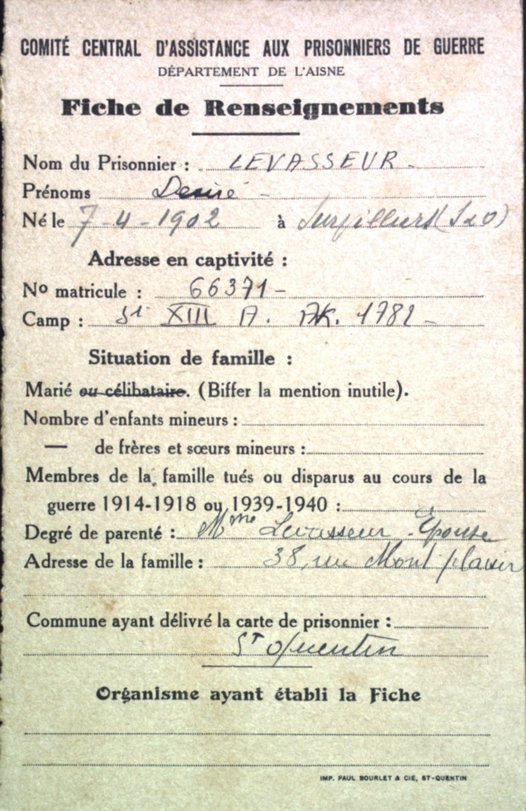 COMITÉ CENTRAL D'ASSISTANCE AUX PRISONNIERS DE GUERRE
DÉPARTEMENT DE L'AISNE
Fiche de Renseignements
Nom du Prisonnier : LEVASSEUR -
Prénoms Desiré -
Né le 7-4-1902 à Survilliers (S&O)
Adresse en captivité :
No matricule : 66371 -
Camp : St XIII A. AK. 1782 -
Situation de famille :
Marié ou célibataire. (Biffer la mention inutile).
Nombre d'enfants mineurs :
— de frères et sœurs mineurs :
Membres de la famille tués ou disparus au cours de la
guerre 1914-1918 ou 1939-1940 :
Degré de parenté : Mme Levasseur - Épouse
Adresse de la famille : 38, rue Mont plaisir
Commune ayant délivré la carte de prisonnier :
St Quentin
Organisme ayant établi la Fiche
IMP. PAUL BOURLET & CIE, ST-QUENTIN